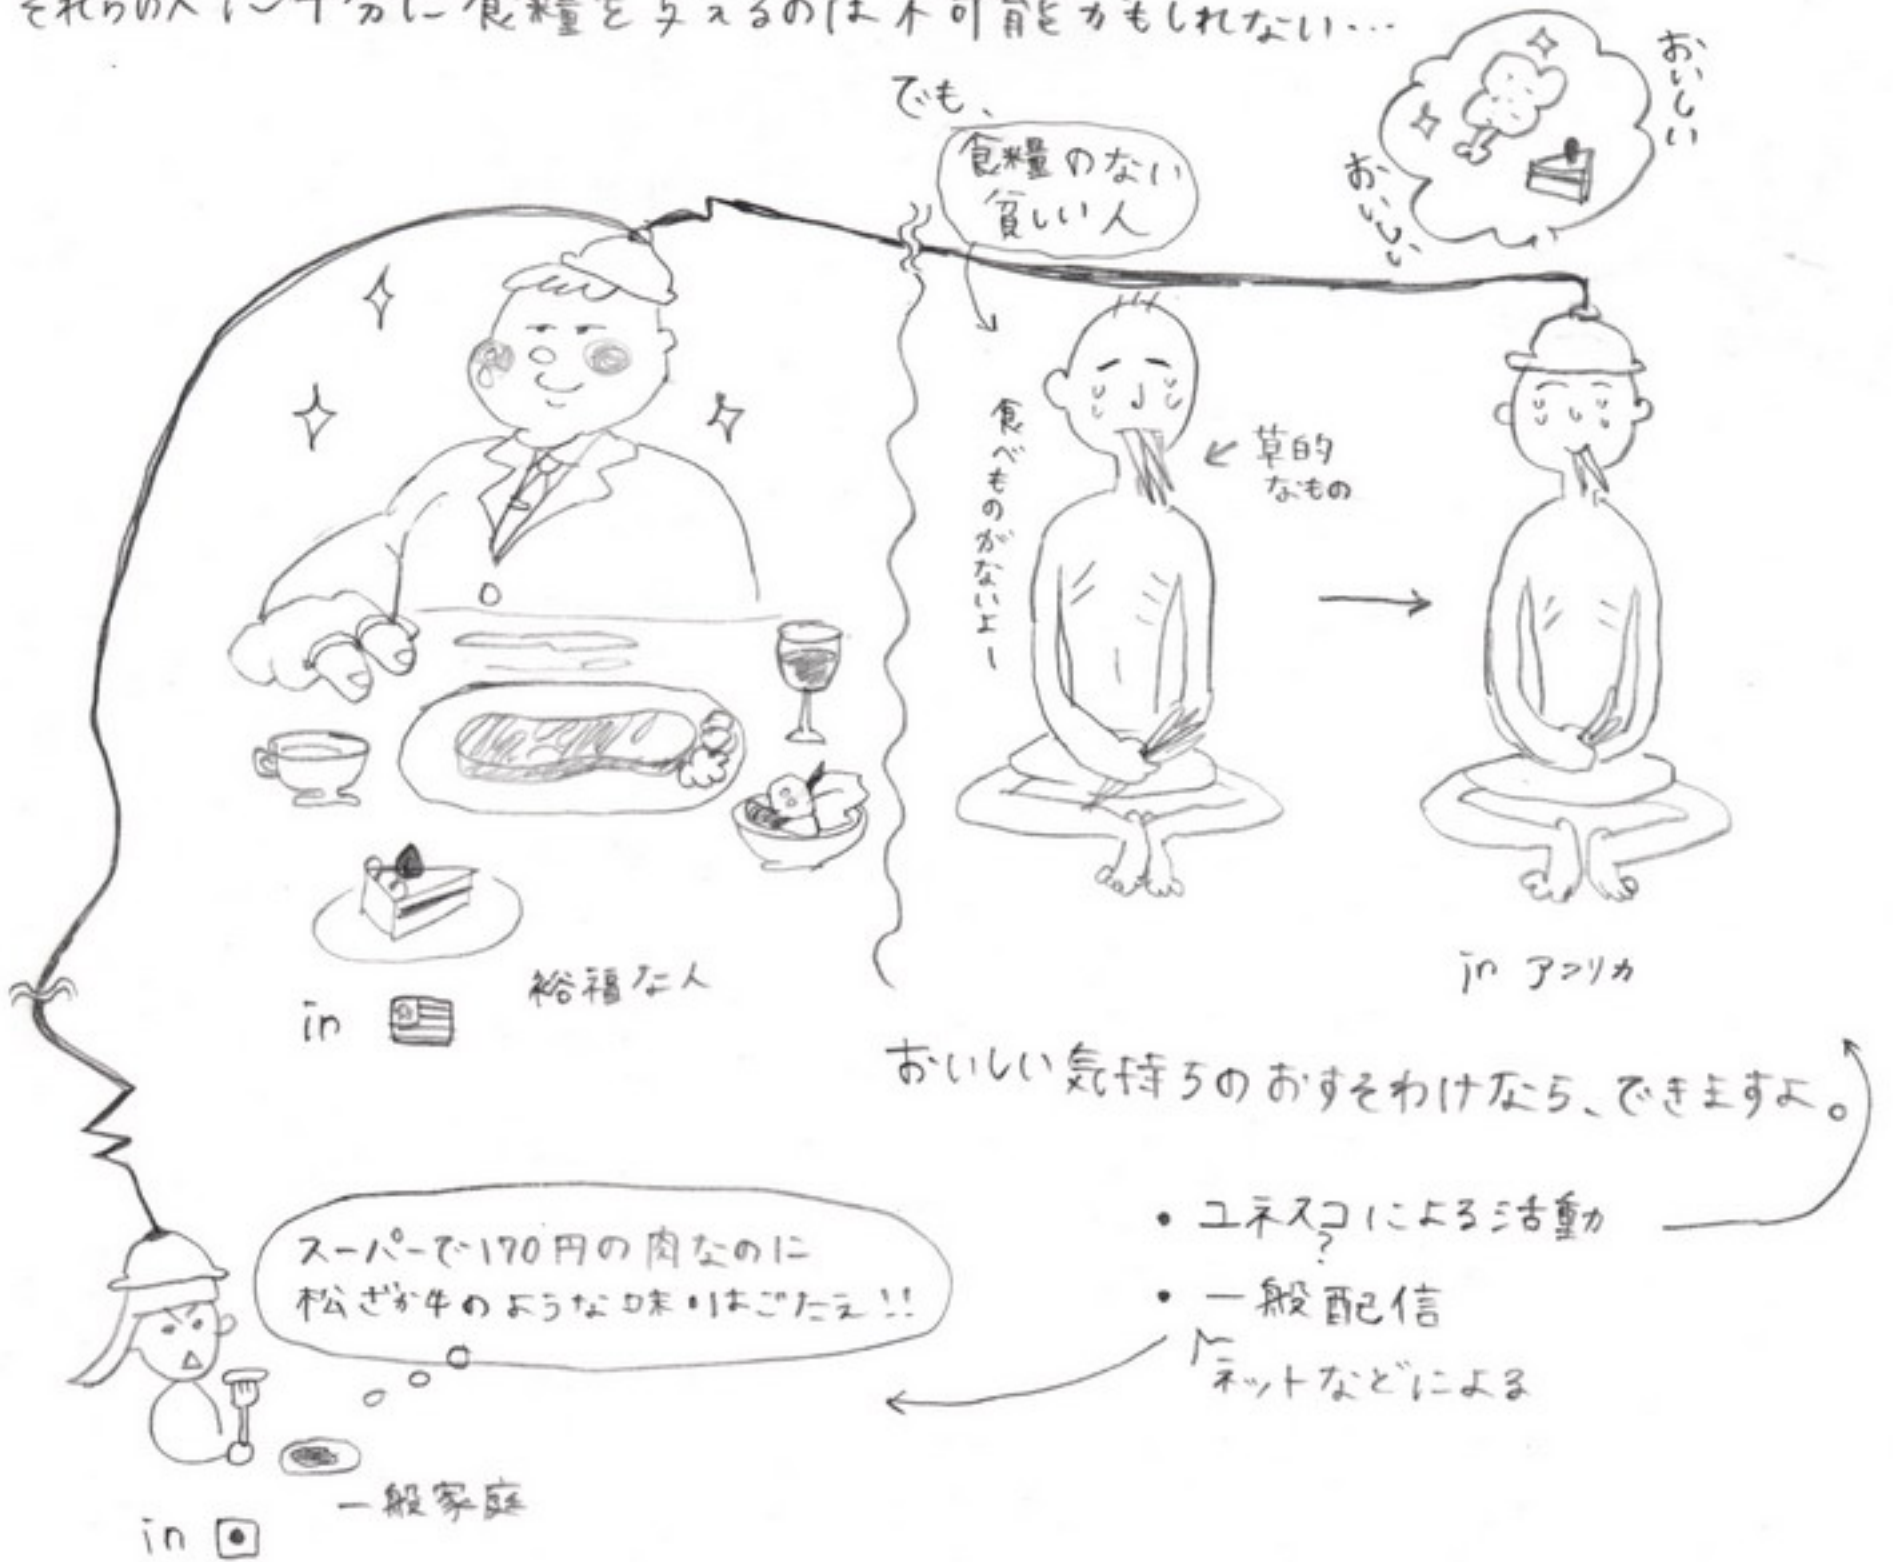 それらの人に十分に食糧を与えるのは不可能かもしれない…
でも、
食糧のない
貧しい人
おいしい
おいしい
食べものがないよー
草的
なもの
in アフリカ
in
裕福な人
おいしい気持ちのおすそわけなら、できますよ。
・ユネスコによる活動
?
・一般配信
ネットなどによる
スーパーで170円の肉なのに
松ざか牛のような味・はごたえ!!
一般家庭
in